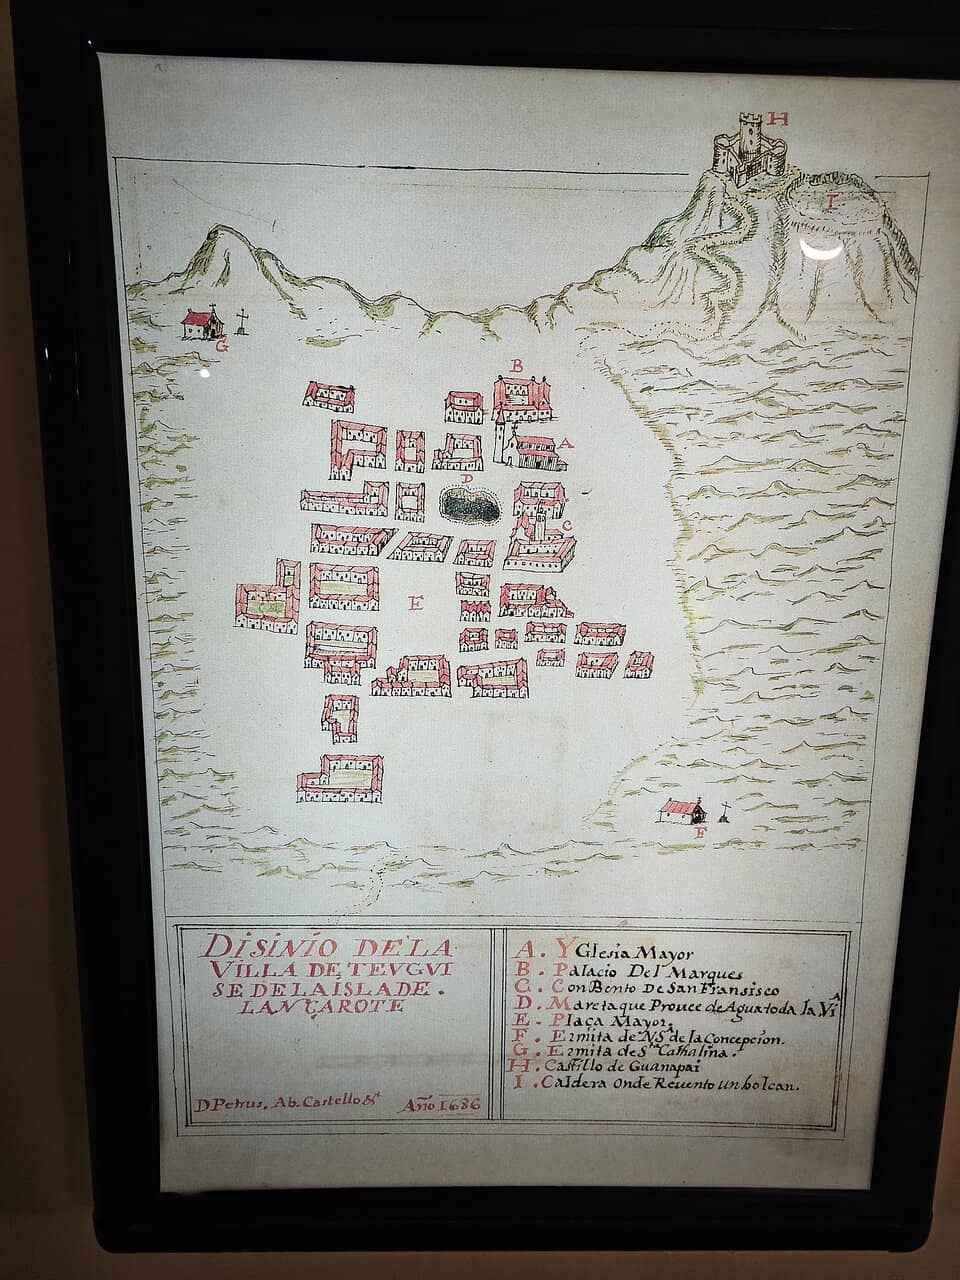 H
I
G
B
A
D
C
E
F
DISINIO DE LA
VILLA DE TEVGUI
SE DE LA ISLA DE.
LANÇAROTE
D Petrus. Ab. Castello &t Año 1686
A. YGlesia Mayor
B. Palacio Del Marques
C. ConBento De San Fransisco
D. Mareta que Provee de Agua toda la ViA
E. Plaça Mayor.
F. Ermita de NSª de la Concepcion.
G. Ermita de Sta Cathalina.
H. Castillo de Guanapai
I. Caldera Onde Revento un bolcan.